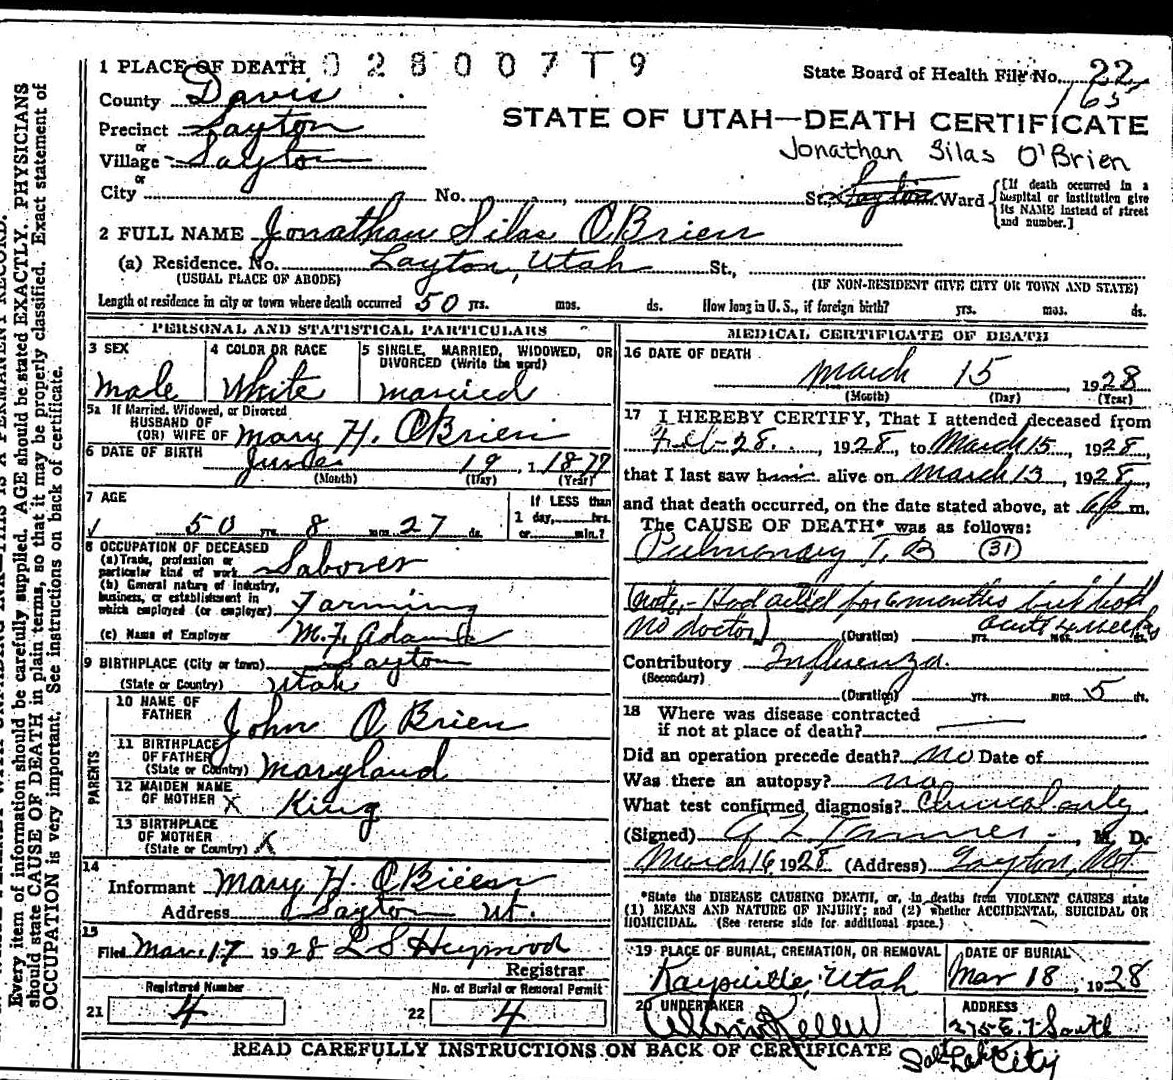 1 PLACE OF DEATH 0 2 8 0 0 7 T 9
State Board of Health File No. 22
165
County Davis
STATE OF UTAH—DEATH CERTIFICATE
Precinct Layton
or
Jonathan Silas O'Brien
Village Layton
or
City No. , St., Layton Ward
[If death occurred in a hospital or institution give its NAME instead of street and number.]
2 FULL NAME Jonathan Silas O'Brien
(a) Residence. No. Layton, Utah St.,
(USUAL PLACE OF ABODE) (IF NON-RESIDENT GIVE CITY OR TOWN AND STATE)
Length of residence in city or town where death occurred 50 yrs. mos. ds. How long in U. S., if foreign birth? yrs. mos. ds.
PERSONAL AND STATISTICAL PARTICULARS
3 SEX
male
4 COLOR OR RACE
White
5 SINGLE, MARRIED, WIDOWED, OR DIVORCED (Write the word)
married
5a If Married, Widowed, or Divorced
HUSBAND OF
(OR) WIFE OF Mary H. O'Brien
6 DATE OF BIRTH June 19, 1877
(Month) (Day) (Year)
7 AGE
50 yrs. 8 mos. 27 ds.
If LESS than
1 day, hrs.
or min.?
8 OCCUPATION OF DECEASED
(a) Trade, profession or
particular kind of work Laborer
(b) General nature of industry,
business, or establishment in
which employed (or employer) Farming
(c) Name of Employer M. F. Adams
9 BIRTHPLACE (City or town) Layton
(State or Country) Utah
PARENTS
10 NAME OF
FATHER John O'Brien
11 BIRTHPLACE
OF FATHER
(State or Country) Maryland
12 MAIDEN NAME
OF MOTHER X King
13 BIRTHPLACE
OF MOTHER
(State or Country) X
14
Informant Mary H. O'Brien
Address Layton Ut.
15
Filed Mar 17 1928 L S Heywood
Registrar
Registered Number
21 4
No. of Burial or Removal Permit
22 4
MEDICAL CERTIFICATE OF DEATH
16 DATE OF DEATH
March 15, 1928
(Month) (Day) (Year)
17 I HEREBY CERTIFY, That I attended deceased from
Feb-28, 1928, to March 15, 1928,
that I last saw him alive on March 13, 1928,
and that death occurred, on the date stated above, at 6 p m.
The CAUSE OF DEATH* was as follows:
Pulmonary T. B (31)
(note,- Had ailed for 6 months but had
no doctor) acute 4 weeks
(Duration) yrs. mos. ds.
Contributory Influenza.
(Secondary)
(Duration) yrs. mos. 5 ds.
18 Where was disease contracted
if not at place of death?
Did an operation precede death? no Date of
Was there an autopsy? no
What test confirmed diagnosis? Clinical only
(Signed) A Z Tanner, M. D.
March 16 1928 (Address) Layton, Ut
*State the DISEASE CAUSING DEATH, or, in deaths from VIOLENT CAUSES state
(1) MEANS AND NATURE OF INJURY; and (2) whether ACCIDENTAL, SUICIDAL OR
HOMICIDAL. (See reverse side for additional space.)
19 PLACE OF BURIAL, CREMATION, OR REMOVAL
Kaysville, Utah
DATE OF BURIAL
Mar 18, 1928
20 UNDERTAKER
ADDRESS
275 E. 7 South
Salt Lake City
READ CAREFULLY INSTRUCTIONS ON BACK OF CERTIFICATE
Every item of information should be carefully supplied. AGE should be stated EXACTLY. PHYSICIANS
should state CAUSE OF DEATH in plain terms, so that it may be properly classified. Exact statement of
OCCUPATION is very important. See instructions on back of certificate.